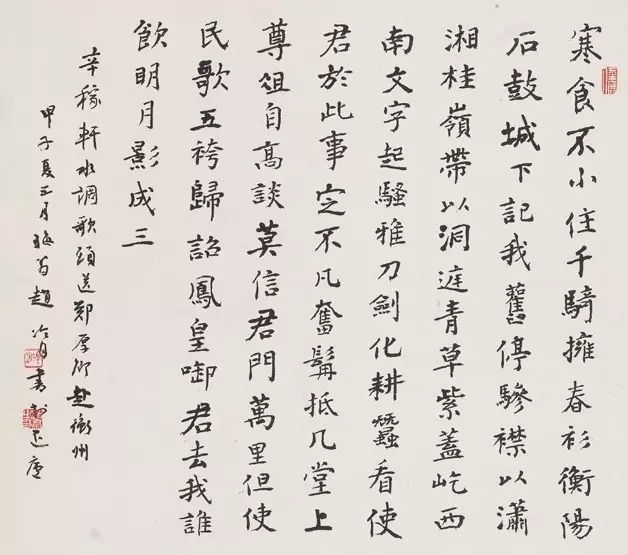 寒食不小住千騎擁春衫衡陽
石鼓城下記我舊停驂襟以瀟
湘桂嶺帶以洞庭青草紫蓋屹西
南文字起騷雅刀劍化耕蠶看使
君於此事定不凡奮髯抵几堂上
尊俎自高談莫信君門萬里但使
民歌五袴歸詔鳳皇啣君去我誰
飲明月影成三
辛稼軒水調歌頭送鄭厚卿赴衡州
甲子夏五月 趙冷月書 迟廬